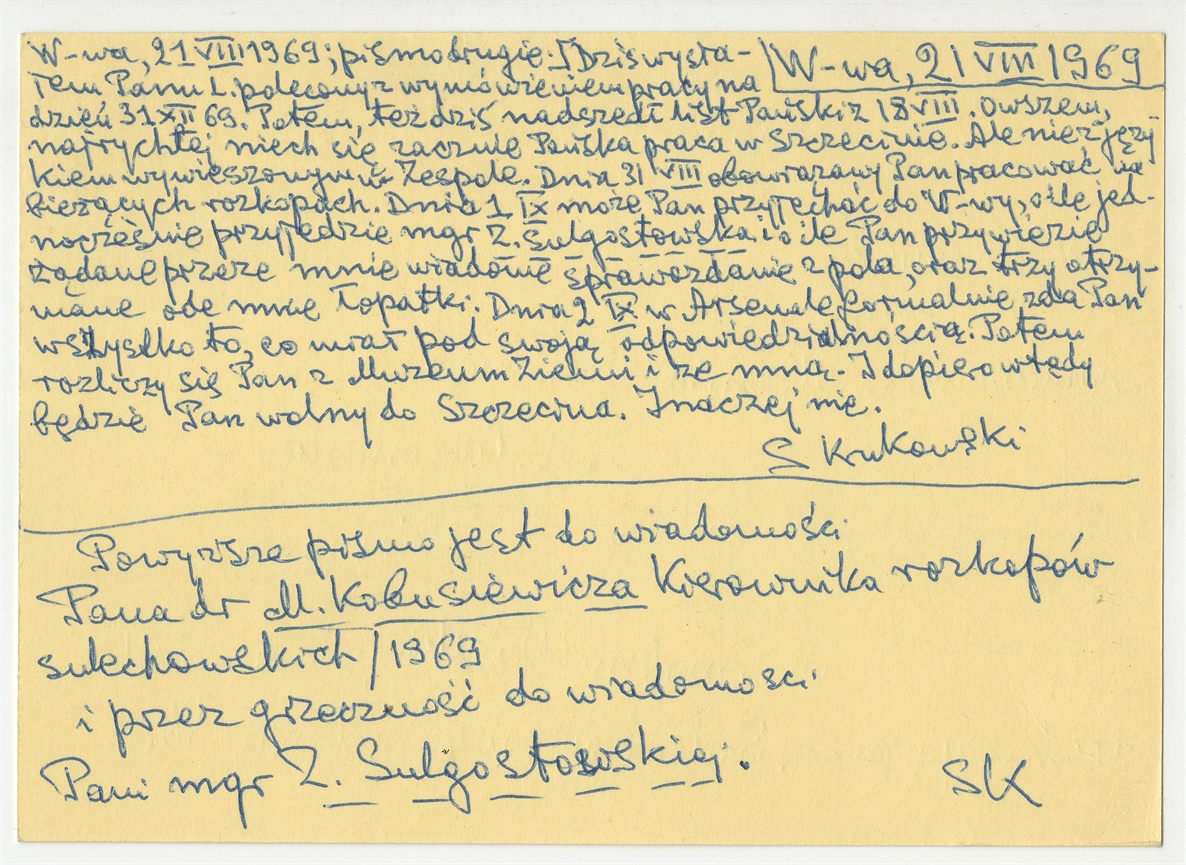 W-wa, 21 VIII 1969; pismo drugie: I Dziś wysła-
W-wa, 21 VIII 1969
łem Panu L. polecony z wymówieniem pracy na
dzień 31 XII 69. Potem, też dziś nadszedł list Pański z 18 VIII. Owszem,
najrychlej niech się zacznie Pańska praca w Szczecinie. Ale nie z języ
kiem wywieszonym w Zespole. Dnia 31 VIII obowiązany Pan pracować na
bieżących rozkopach. Dnia 1 IX może Pan przyjechać do W-wy, o ile jed-
nocześnie przyjedzie mgr Z. Sulgostowska i o ile Pan przywiezie
żądane przeze mnie wiadome sprawozdanie z pola, oraz trzy otrzy-
mane ode mnie łopatki. Dnia 2 IX w Arsenale formalnie zda Pan
wszystko to, co miał pod swoją odpowiedzialnością. Potem
rozliczy się Pan z Muzeum Ziemi i ze mną. I dopiero wtedy
będzie Pan wolny do Szczecina. Inaczej nie.
S Krukowski
Powyższe pismo jest do wiadomości
Pana dr M. Kobusiewicza Kierownika rozkopów
sulechowskich / 1969
i przez grzeczność do wiadomości
Pani mgr Z. Sulgostowskiej.
SK